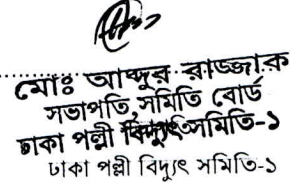 মোঃ আব্দুর রাজ্জাক
সভাপতি, সমিতি বোর্ড
ঢাকা পল্লী বিদ্যুৎ সমিতি-১
ঢাকা পল্লী বিদ্যুৎ সমিতি-১